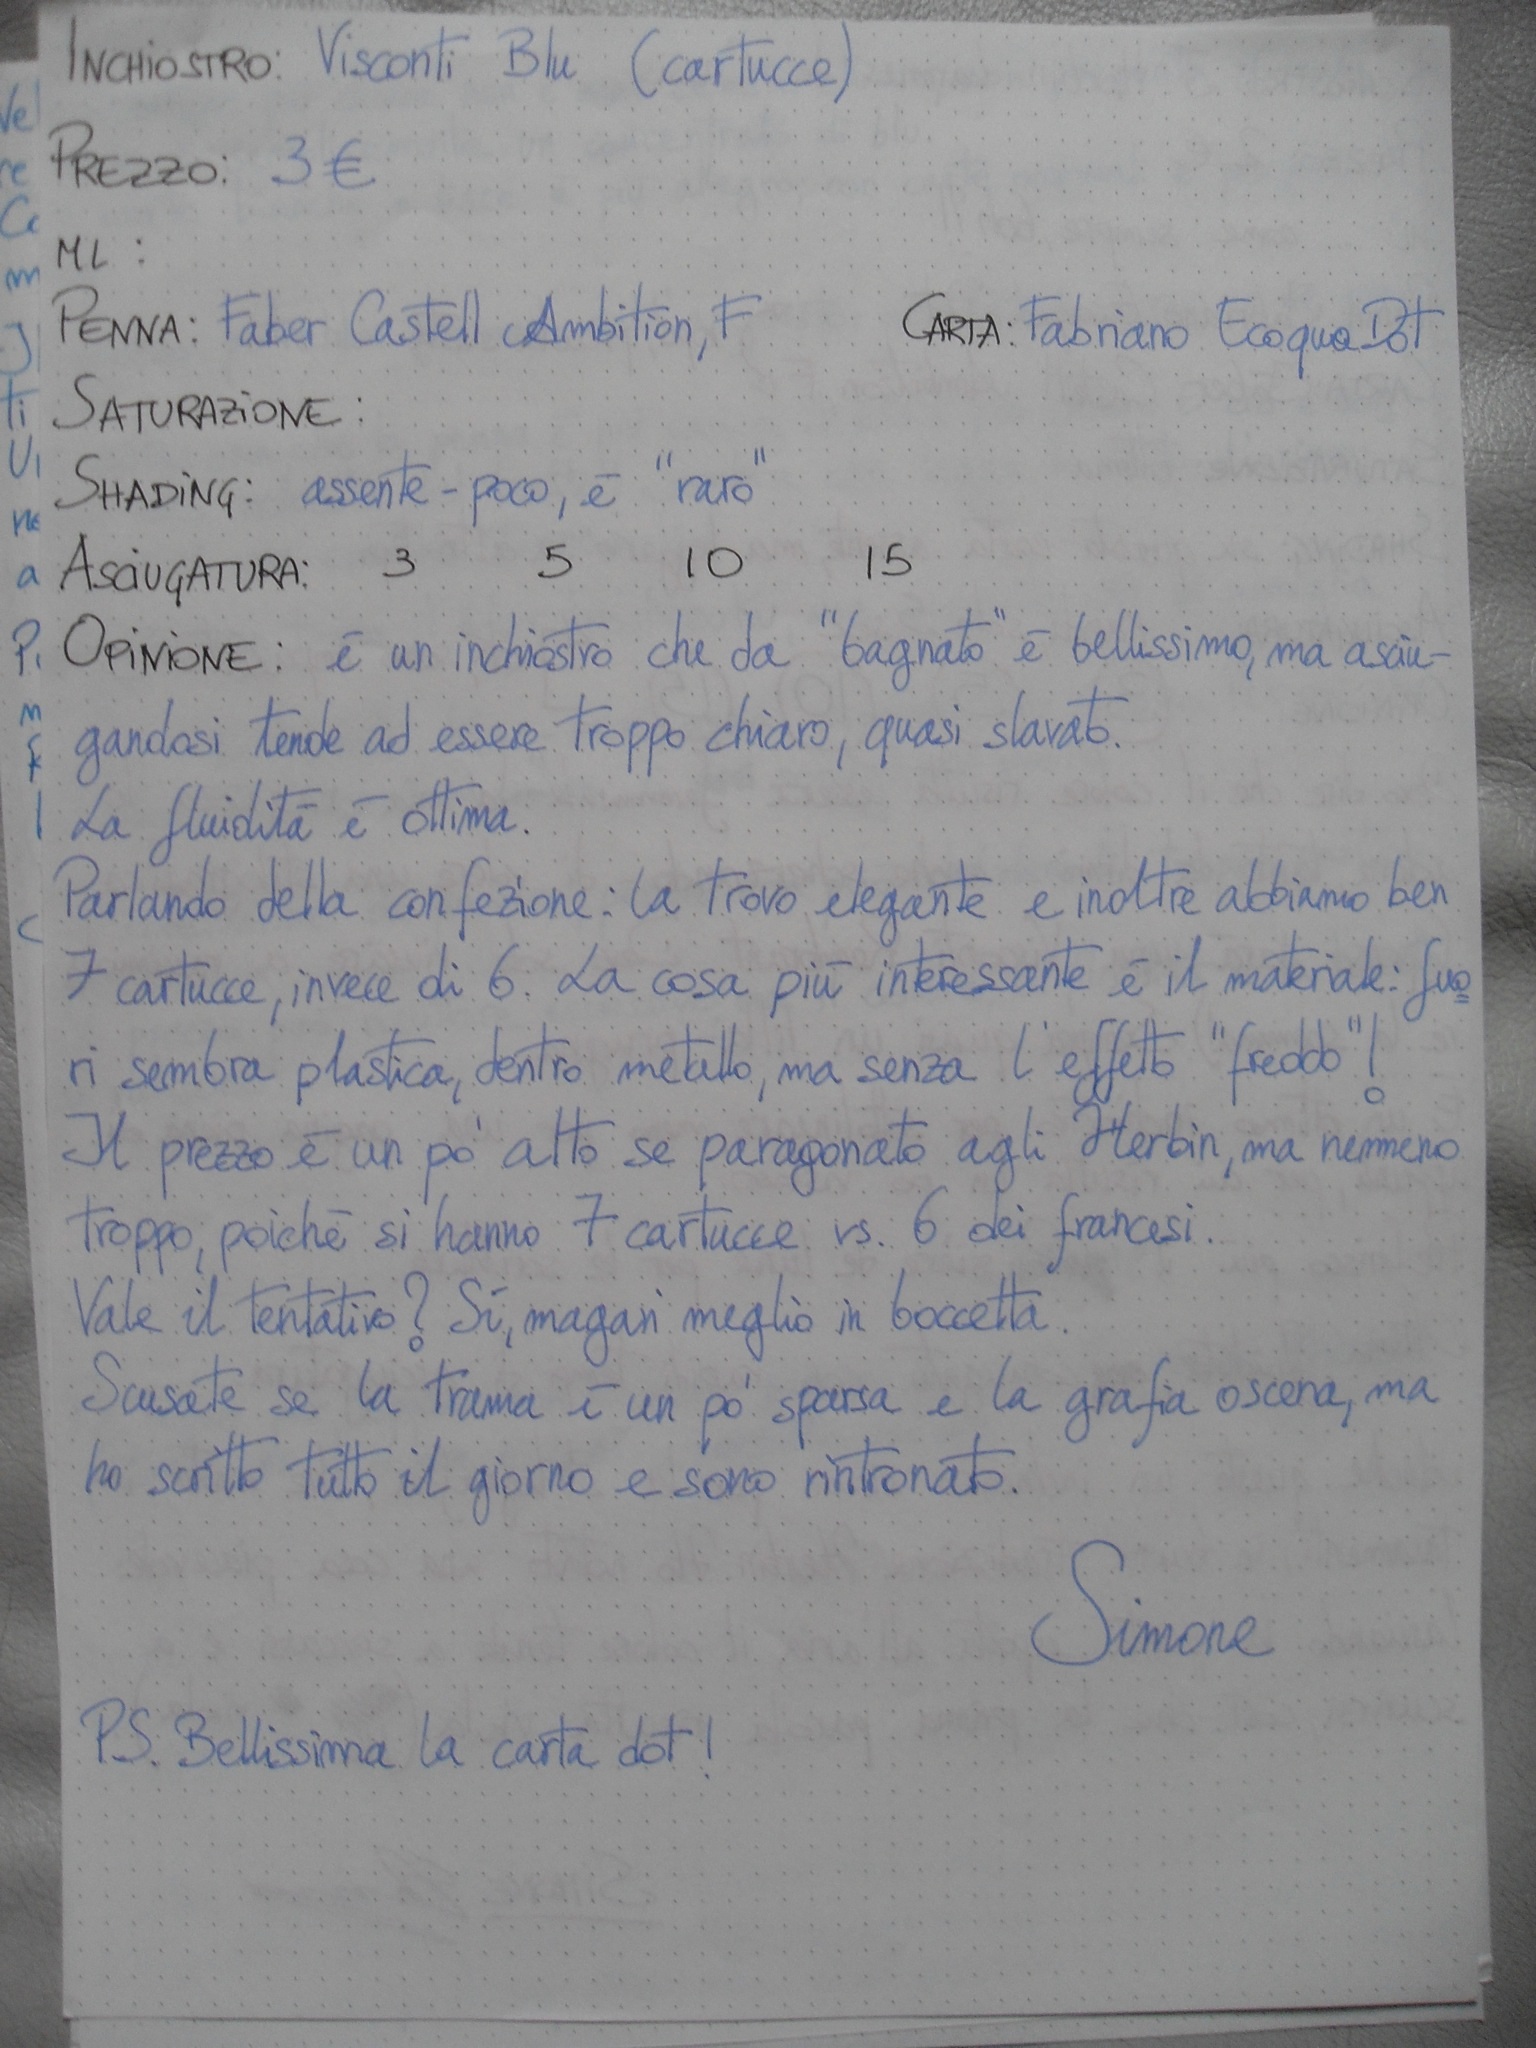 INCHIOSTRO: Visconti Blu (cartucce)
PREZZO: 3 €
ML :
PENNA: Faber Castell Ambition, F CARTA: Fabriano Ecoqua Dot
SATURAZIONE:
SHADING: assente - poco, è "raro"
ASCIUGATURA: 3 5 10 15
OPINIONE: è un inchiostro che da "bagnato" è bellissimo, ma asciu-
gandosi tende ad essere troppo chiaro, quasi slavato.
La fluidità è ottima.
Parlando della confezione: la trovo elegante e inoltre abbiamo ben
7 cartucce, invece di 6. La cosa più interessante è il materiale: fuo
ri sembra plastica, dentro metallo, ma senza l'effetto "freddo"!
Il prezzo è un po' alto se paragonato agli Herbin, ma nemmeno
troppo, poiché si hanno 7 cartucce vs. 6 dei francesi.
Vale il tentativo? Sì, magari meglio in boccetta.
Scusate se la trama è un po' sparsa e la grafia oscena, ma
ho scritto tutto il giorno e sono rintronato.
Simone
P.S. Bellissima la carta dot!